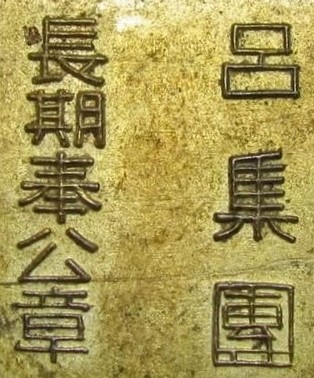 呂集團
長期奉公章